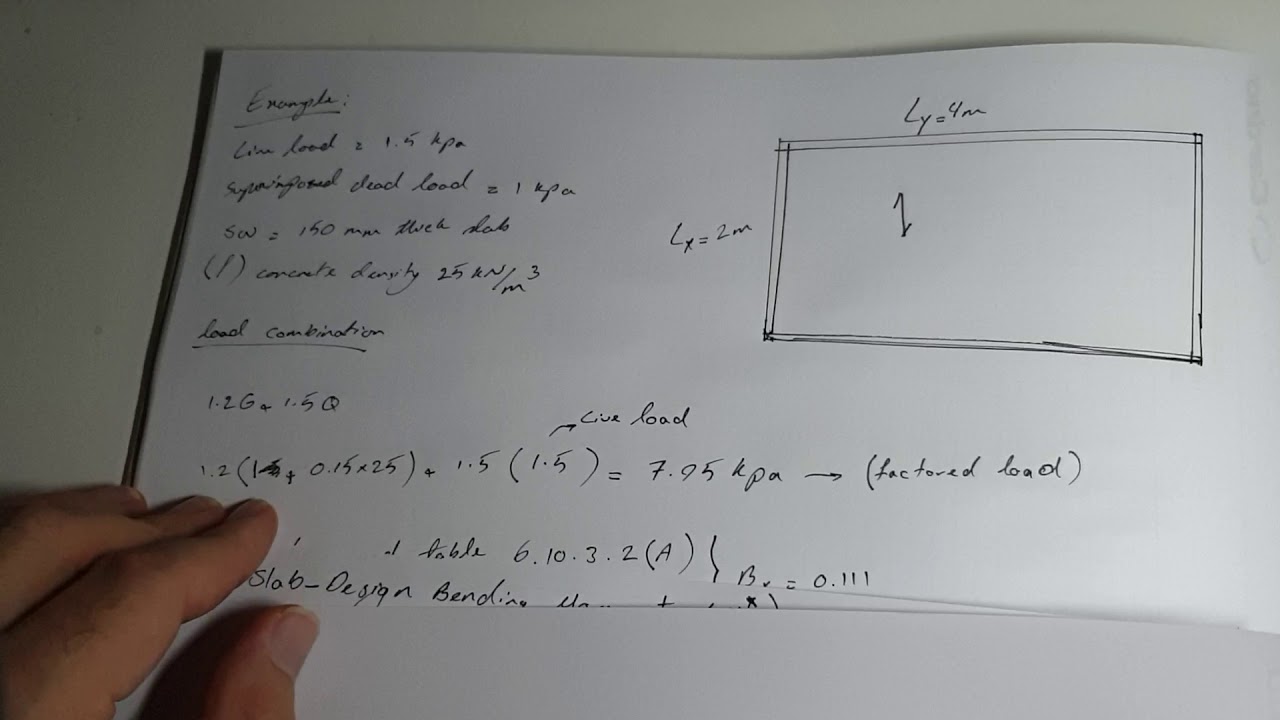 Example:
Live load = 1.5 kpa
Superimposed dead load = 1 kpa
SW = 150 mm thick slab
(f) concrete density 25 kN/m3
load combination
1.2G + 1.5Q
Live load
1.2(1 + 0.15x25) + 1.5 (1.5) = 7.95 kpa → (factored load)
table 6.10.3.2(A)
= 0.111
Slab-Design Bending
Ly=4m
Lx=2m